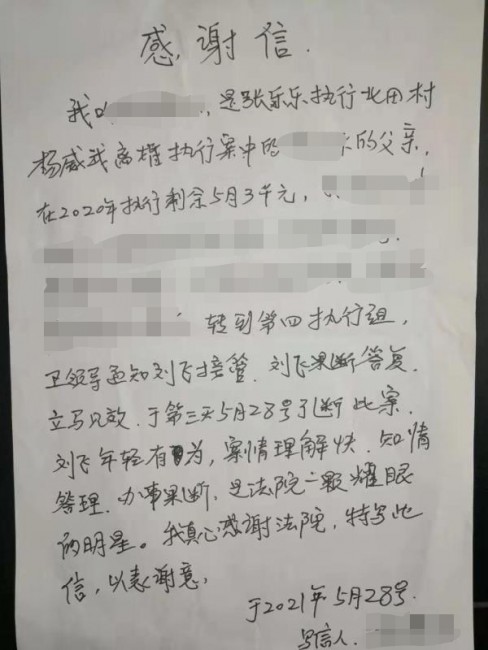 感谢信.
我叫 ，是张乐乐执行北田村
杨威武离婚执行案中的 的父亲，
在2020年执行剩余5月3千元，
转到第四执行组，
卫领导通知刘飞接管.刘飞果断答复.
立马见效.于第三天5月28号了断此案.
刘飞年轻有为，案情理解快.知情
答理.办事果断.是法院一颗耀眼
的明星。我真心感谢法院，特写此
信，以表谢意，
于2021年5月28号.
写信人.